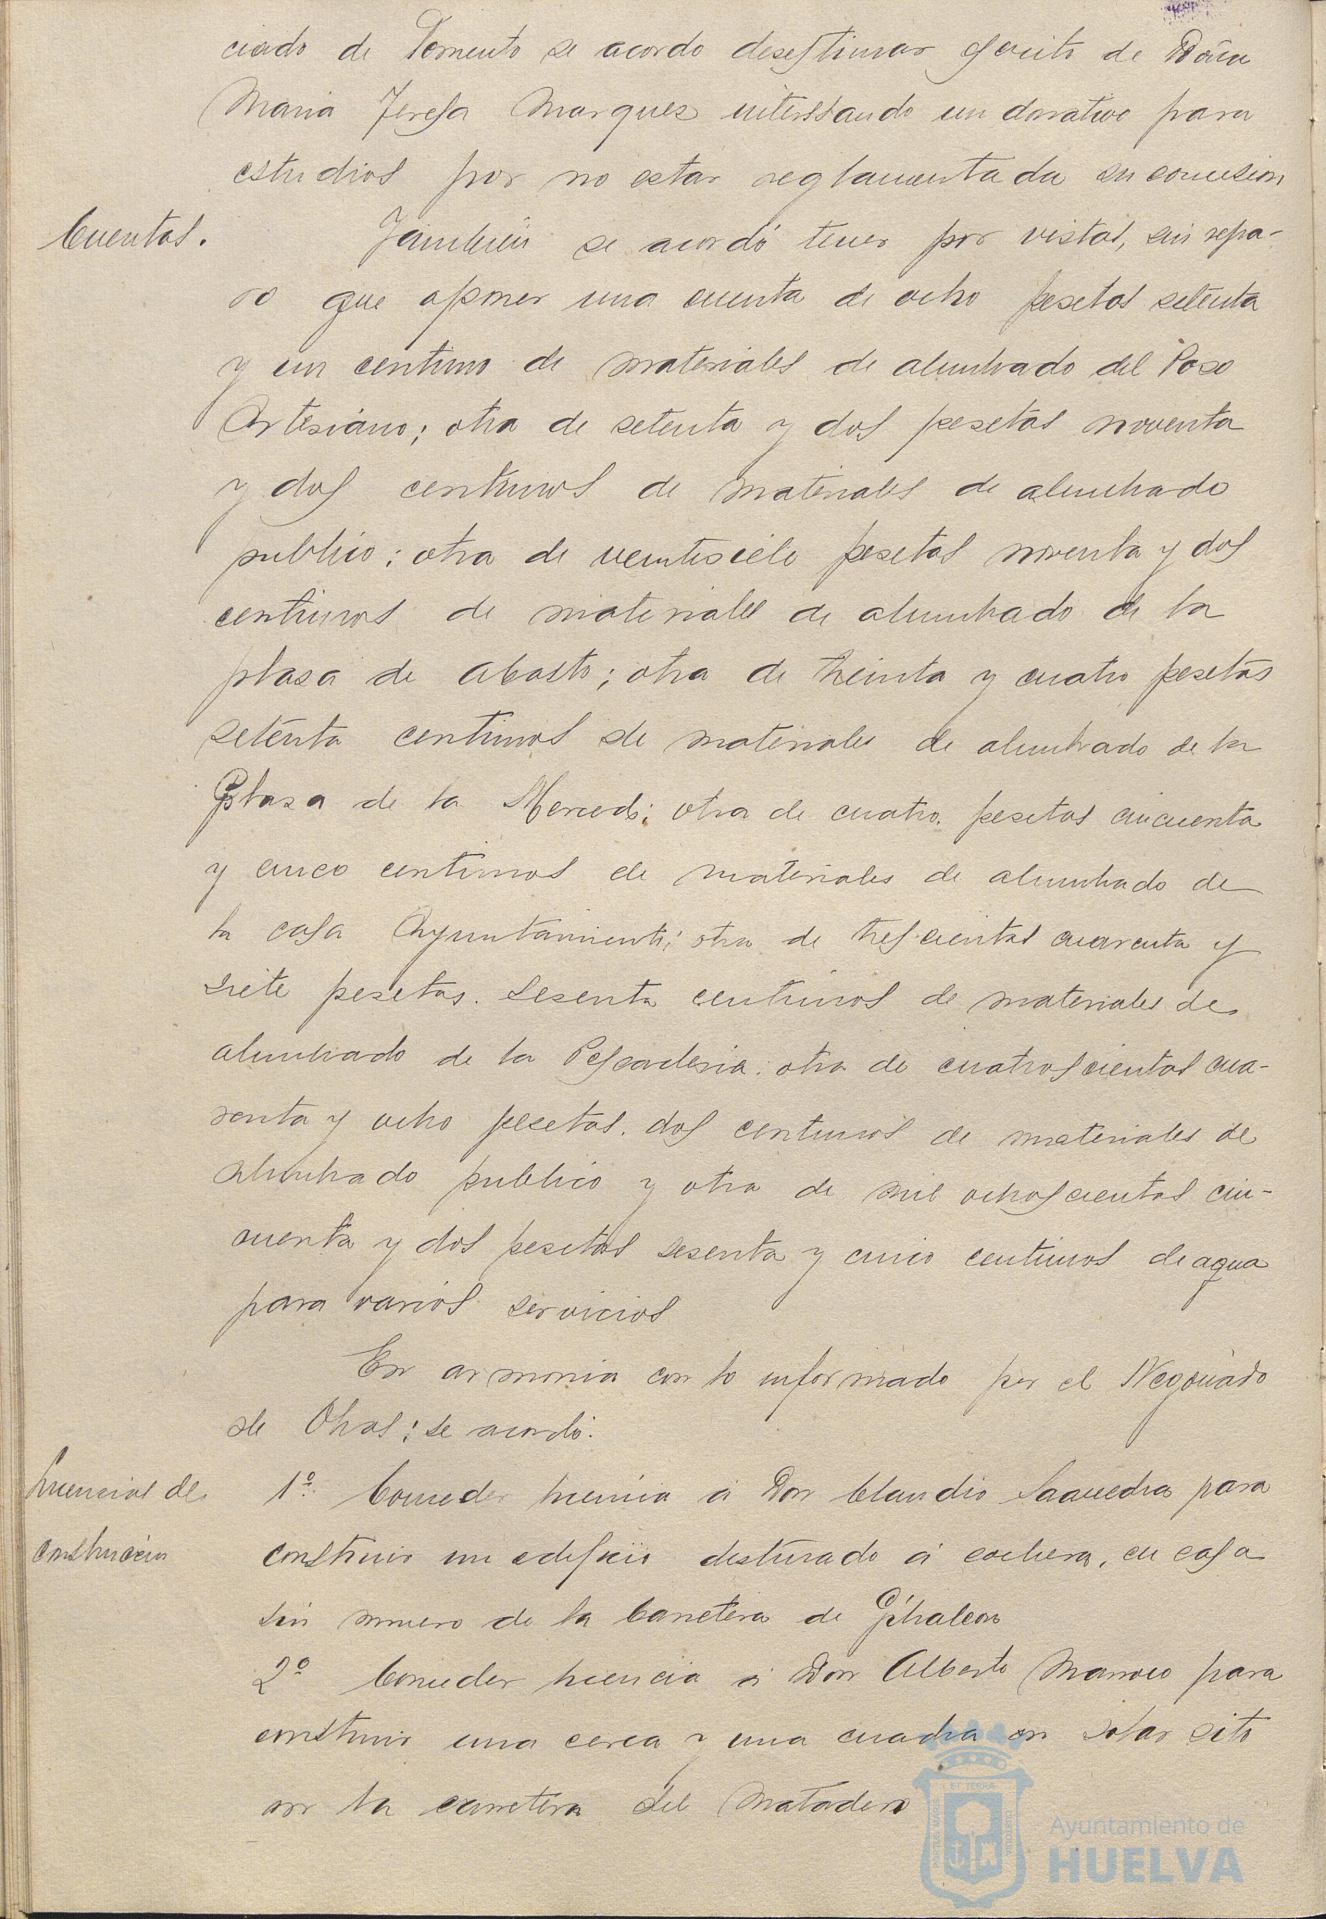 ciado de Fomento se acordo desestimar escrito de Doña
Maria Teresa Marquez interesando un donativo para
estudios por no estar reglamentada su concesion
Cuentas.
También se acordó tener por vistas, sin repa-
ro que oponer una cuenta de ocho pesetas setenta
y un centimo de materiales de alumbrado del Poso
Artesiano; otra de setenta y dos pesetas noventa
y dos centimos de materiales de alumbrado
publico; otra de veintisiete pesetas noventa y dos
centimos de materiales de alumbrado de la
plasa de abasto; otra de treinta y cuatro pesetas
setenta centimos de materiales de alumbrado de la
Plasa de la Merced; otra de cuatro pesetas cincuenta
y cinco centimos de materiales de alumbrado de
la casa Ayuntamiento; otra de trescientas cuarenta y
siete pesetas sesenta centimos de materiales de
alumbrado de la Pescaderia. otra de cuatroscientas cua-
renta y ocho pesetas dos centimos de materiales de
alumbrado publico y otra de mil ochoscientas cin-
cuenta y dos pesetas sesenta y cinco centimos de agua
para varios servicios
En armonia con lo informado por el Negociado
de Obras; se acordó.
Licencias de
construcción
1º Conceder licencia á Don Claudio Saavedra para
construir un edificio destinado á cochera, en casa
sin numero de la Carretera de Gibraleon
2º Conceder licencia á Don Alberto Marroco para
construir una cerca y una cuadra en solar sito
en la carretera del Matadero
Ayuntamiento de
HUELVA